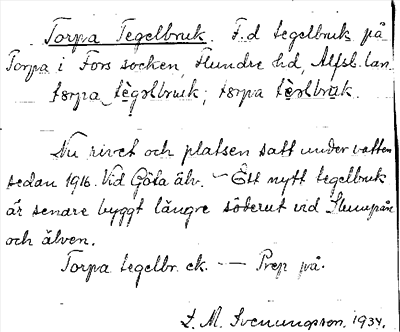 Torpa Tegelbruk. F.d tegelbruk på
Torpa i Fors socken, Flundre hd, Älfsb. län.
torpa tègəlbruk; torpa tèəlbruk.
Nu rivet och platsen satt under vatten
sedan 1916. Vid Göta älv. – Ett nytt tegelbruk
är senare byggt längre söderut vid
och älven.
Torpa tegelbr. ek. — Prep på.
L. M. Svenungsson, 1934.